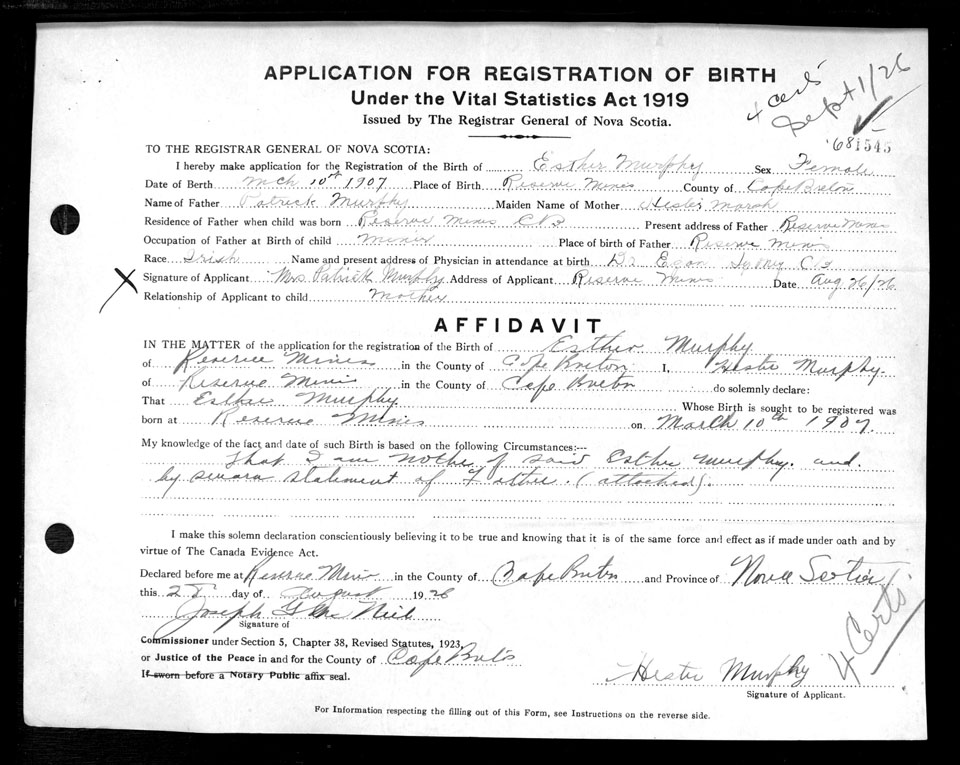 APPLICATION FOR REGISTRATION OF BIRTH
Under the Vital Statistics Act 1919
Issued by The Registrar General of Nova Scotia.
4 certs
Sept 1/26
681545
TO THE REGISTRAR GENERAL OF NOVA SCOTIA:
I hereby make application for the Registration of the Birth of Esther Murphy Sex Female
Date of Berth Mch 10th 1907 Place of Birth Reserve Mines County of Cape Breton
Name of Father Patrick Murphy Maiden Name of Mother Hester Marsh
Residence of Father when child was born Reserve Mines CB Present address of Father Reserve Mines
Occupation of Father at Berth of child Miner Place of birth of Father Reserve Mines
Race Irish Name and present address of Physician in attendance at birth Dr Sydney CB
X Signature of Applicant Mrs Patrick Murphy Address of Applicant Reserve Mines Date Aug 26/26
Relationship of Applicant to child Mother
AFFIDAVIT
IN THE MATTER of the application for the registration of the Birth of Esther Murphy
of Reserve Mines in the County of Cape Breton I, Hester Murphy
of Reserve Mines in the County of Cape Breton do solemnly declare:
That Esther Murphy Whose Birth is sought to be registered was
born at Reserve Mines on March 10th 1907.
My knowledge of the fact and date of such Birth is based on the following Circumstances:--
That I am Mother of said Esther Murphy. and
by sworn statement of Father. (attached).
I make this solemn declaration conscientiously believing it to be true and knowing that it is of the same force and effect as if made under oath and by
virtue of The Canada Evidence Act.
Declared before me at Reserve Mines in the County of Cape Breton and Province of Nova Scotia
this day of August 1926
Joseph G Mc Neil
Signature of
Commissioner under Section 5, Chapter 38, Revised Statutes, 1923,
or Justice of the Peace in and for the County of Cape Breton
If sworn before a Notary Public affix seal.
Hester Murphy
4 Certs
Signature of Applicant.
For Information respecting the filling out of this Form, see Instructions on the reverse side.